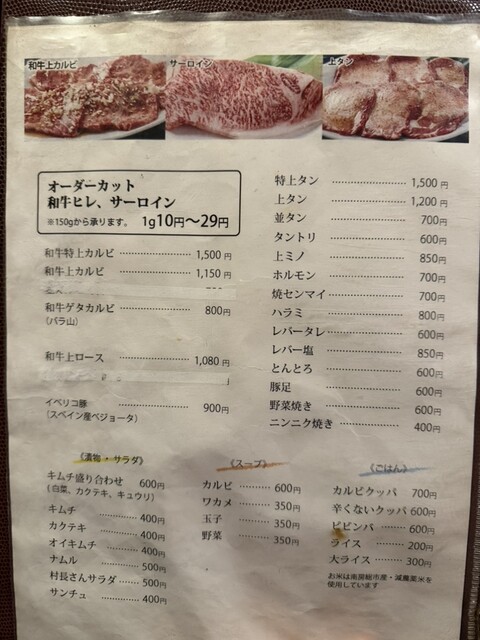 和牛上カルビ
サーロイン
上タン
オーダーカット
和牛ヒレ、サーロイン
※150gから承ります。 1g10円〜29円
和牛特上カルビ 1,500円
和牛上カルビ 1,150円
和牛ゲタカルビ 800円
(バラ山)
和牛上ロース 1,080円
イベリコ豚 900円
(スペイン産ベジョータ)
特上タン 1,500円
上タン 1,200円
並タン 700円
タントリ 600円
上ミノ 850円
ホルモン 700円
焼センマイ 700円
ハラミ 800円
レバータレ 600円
レバー塩 850円
とんとろ 600円
豚足 600円
野菜焼き 600円
ニンニク焼き 400円
《漬物・サラダ》
キムチ盛り合わせ 600円
(白菜、カクテキ、キュウリ)
キムチ 400円
カクテキ 400円
オイキムチ 400円
ナムル 500円
村長さんサラダ 500円
サンチュ 400円
《スープ》
カルビ 600円
ワカメ 350円
玉子 350円
野菜 350円
《ごはん》
カルビクッパ 700円
辛くないクッパ 600円
ビビンバ 600円
ライス 200円
大ライス 300円
お米は南房総市産・減農薬米を
使用しています